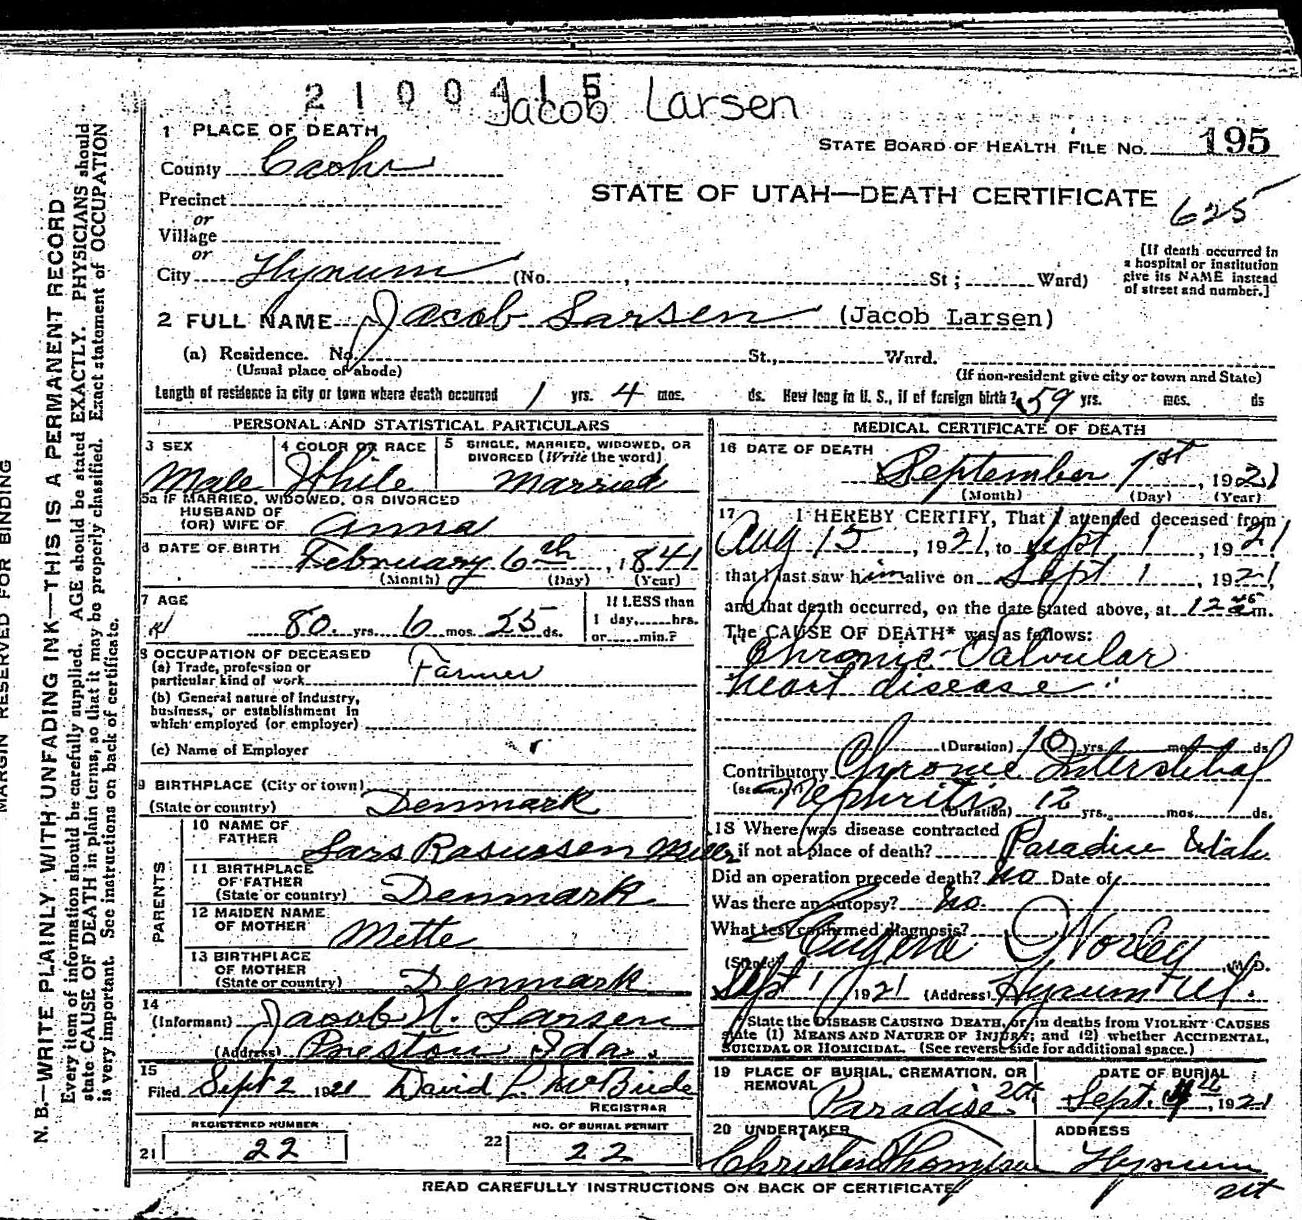 2100415
Jacob Larsen
1 PLACE OF DEATH
STATE BOARD OF HEALTH FILE NO. 195
County Cache
STATE OF UTAH—DEATH CERTIFICATE
625
Precinct
or
Village
or
City Hyrum (No. , St; Ward)
[If death occurred in
a hospital or institution
give its NAME instead
of street and number.]
2 FULL NAME Jacob Larsen (Jacob Larsen)
(a) Residence. No. St., Ward.
(Usual place of abode) (If non-resident give city or town and State)
Length of residence in city or town where death occurred 1 yrs. 4 mos. ds. How long in U. S., if of foreign birth? 59 yrs. mos. ds
PERSONAL AND STATISTICAL PARTICULARS
3 SEX
Male
4 COLOR OR RACE
White
5 SINGLE, MARRIED, WIDOWED, OR
DIVORCED (Write the word)
Married
5a IF MARRIED, WIDOWED, OR DIVORCED
HUSBAND OF
(OR) WIFE OF Anna
6 DATE OF BIRTH February 6th, 1841
(Month) (Day) (Year)
7 AGE
80 yrs. 6 mos. 25 ds.
If LESS than
1 day, hrs.
or min.?
8 OCCUPATION OF DECEASED
(a) Trade, profession or
particular kind of work Farmer
(b) General nature of industry,
business, or establishment in
which employed (or employer)
(c) Name of Employer
9 BIRTHPLACE (City or town)
(State or country) Denmark
PARENTS
10 NAME OF
FATHER Lars Rasmssen Miller
11 BIRTHPLACE
OF FATHER
(State or country) Denmark
12 MAIDEN NAME
OF MOTHER Mette
13 BIRTHPLACE
OF MOTHER
(State or country) Denmark
14
(Informant) Jacob N. Larsen
(Address) Preston Ida.
15
Filed Sept 2 1921 David L. McBride
REGISTRAR
REGISTERED NUMBER
21 22
NO. OF BURIAL PERMIT
22 22
MEDICAL CERTIFICATE OF DEATH
16 DATE OF DEATH
September 1st, 1921
(Month) (Day) (Year)
17 I HEREBY CERTIFY, That I attended deceased from
Aug 15, 1921, to Sept 1, 1921
that I last saw him alive on Sept 1, 1921
and that death occurred, on the date stated above, at 12 m.
The CAUSE OF DEATH* was as follows:
Chronic Valvular
heart disease
(Duration) 10 yrs. mos. ds.
Contributory Chronic Interstitial
Nephritis
(Duration) 12 yrs. mos. ds.
18 Where was disease contracted
if not at place of death? Paradise Utah
Did an operation precede death? No Date of
Was there an autopsy? No.
What test confirmed diagnosis?
(Signed) Eugene Worley M. D.
Sept 1 1921 (Address) Hyrum Ut.
*State the DISEASE CAUSING DEATH, or in deaths from VIOLENT CAUSES
state (1) MEANS AND NATURE OF INJURY; and (2) whether ACCIDENTAL,
SUICIDAL OR HOMICIDAL. (See reverse side for additional space.)
19 PLACE OF BURIAL, CREMATION, OR
REMOVAL
Paradise Ut.
DATE OF BURIAL
Sept. 4th, 1921
20 UNDERTAKER
Christen Thompson
ADDRESS
Hyrum
Ut
READ CAREFULLY INSTRUCTIONS ON BACK OF CERTIFICATE
MARGIN RESERVED FOR BINDING
N. B.—WRITE PLAINLY WITH UNFADING INK—THIS IS A PERMANENT RECORD
Every item of information should be carefully supplied. AGE should be stated EXACTLY. PHYSICIANS should
state CAUSE OF DEATH in plain terms, so that it may be properly classified. Exact statement of OCCUPATION
is very important. See instructions on back of certificate.